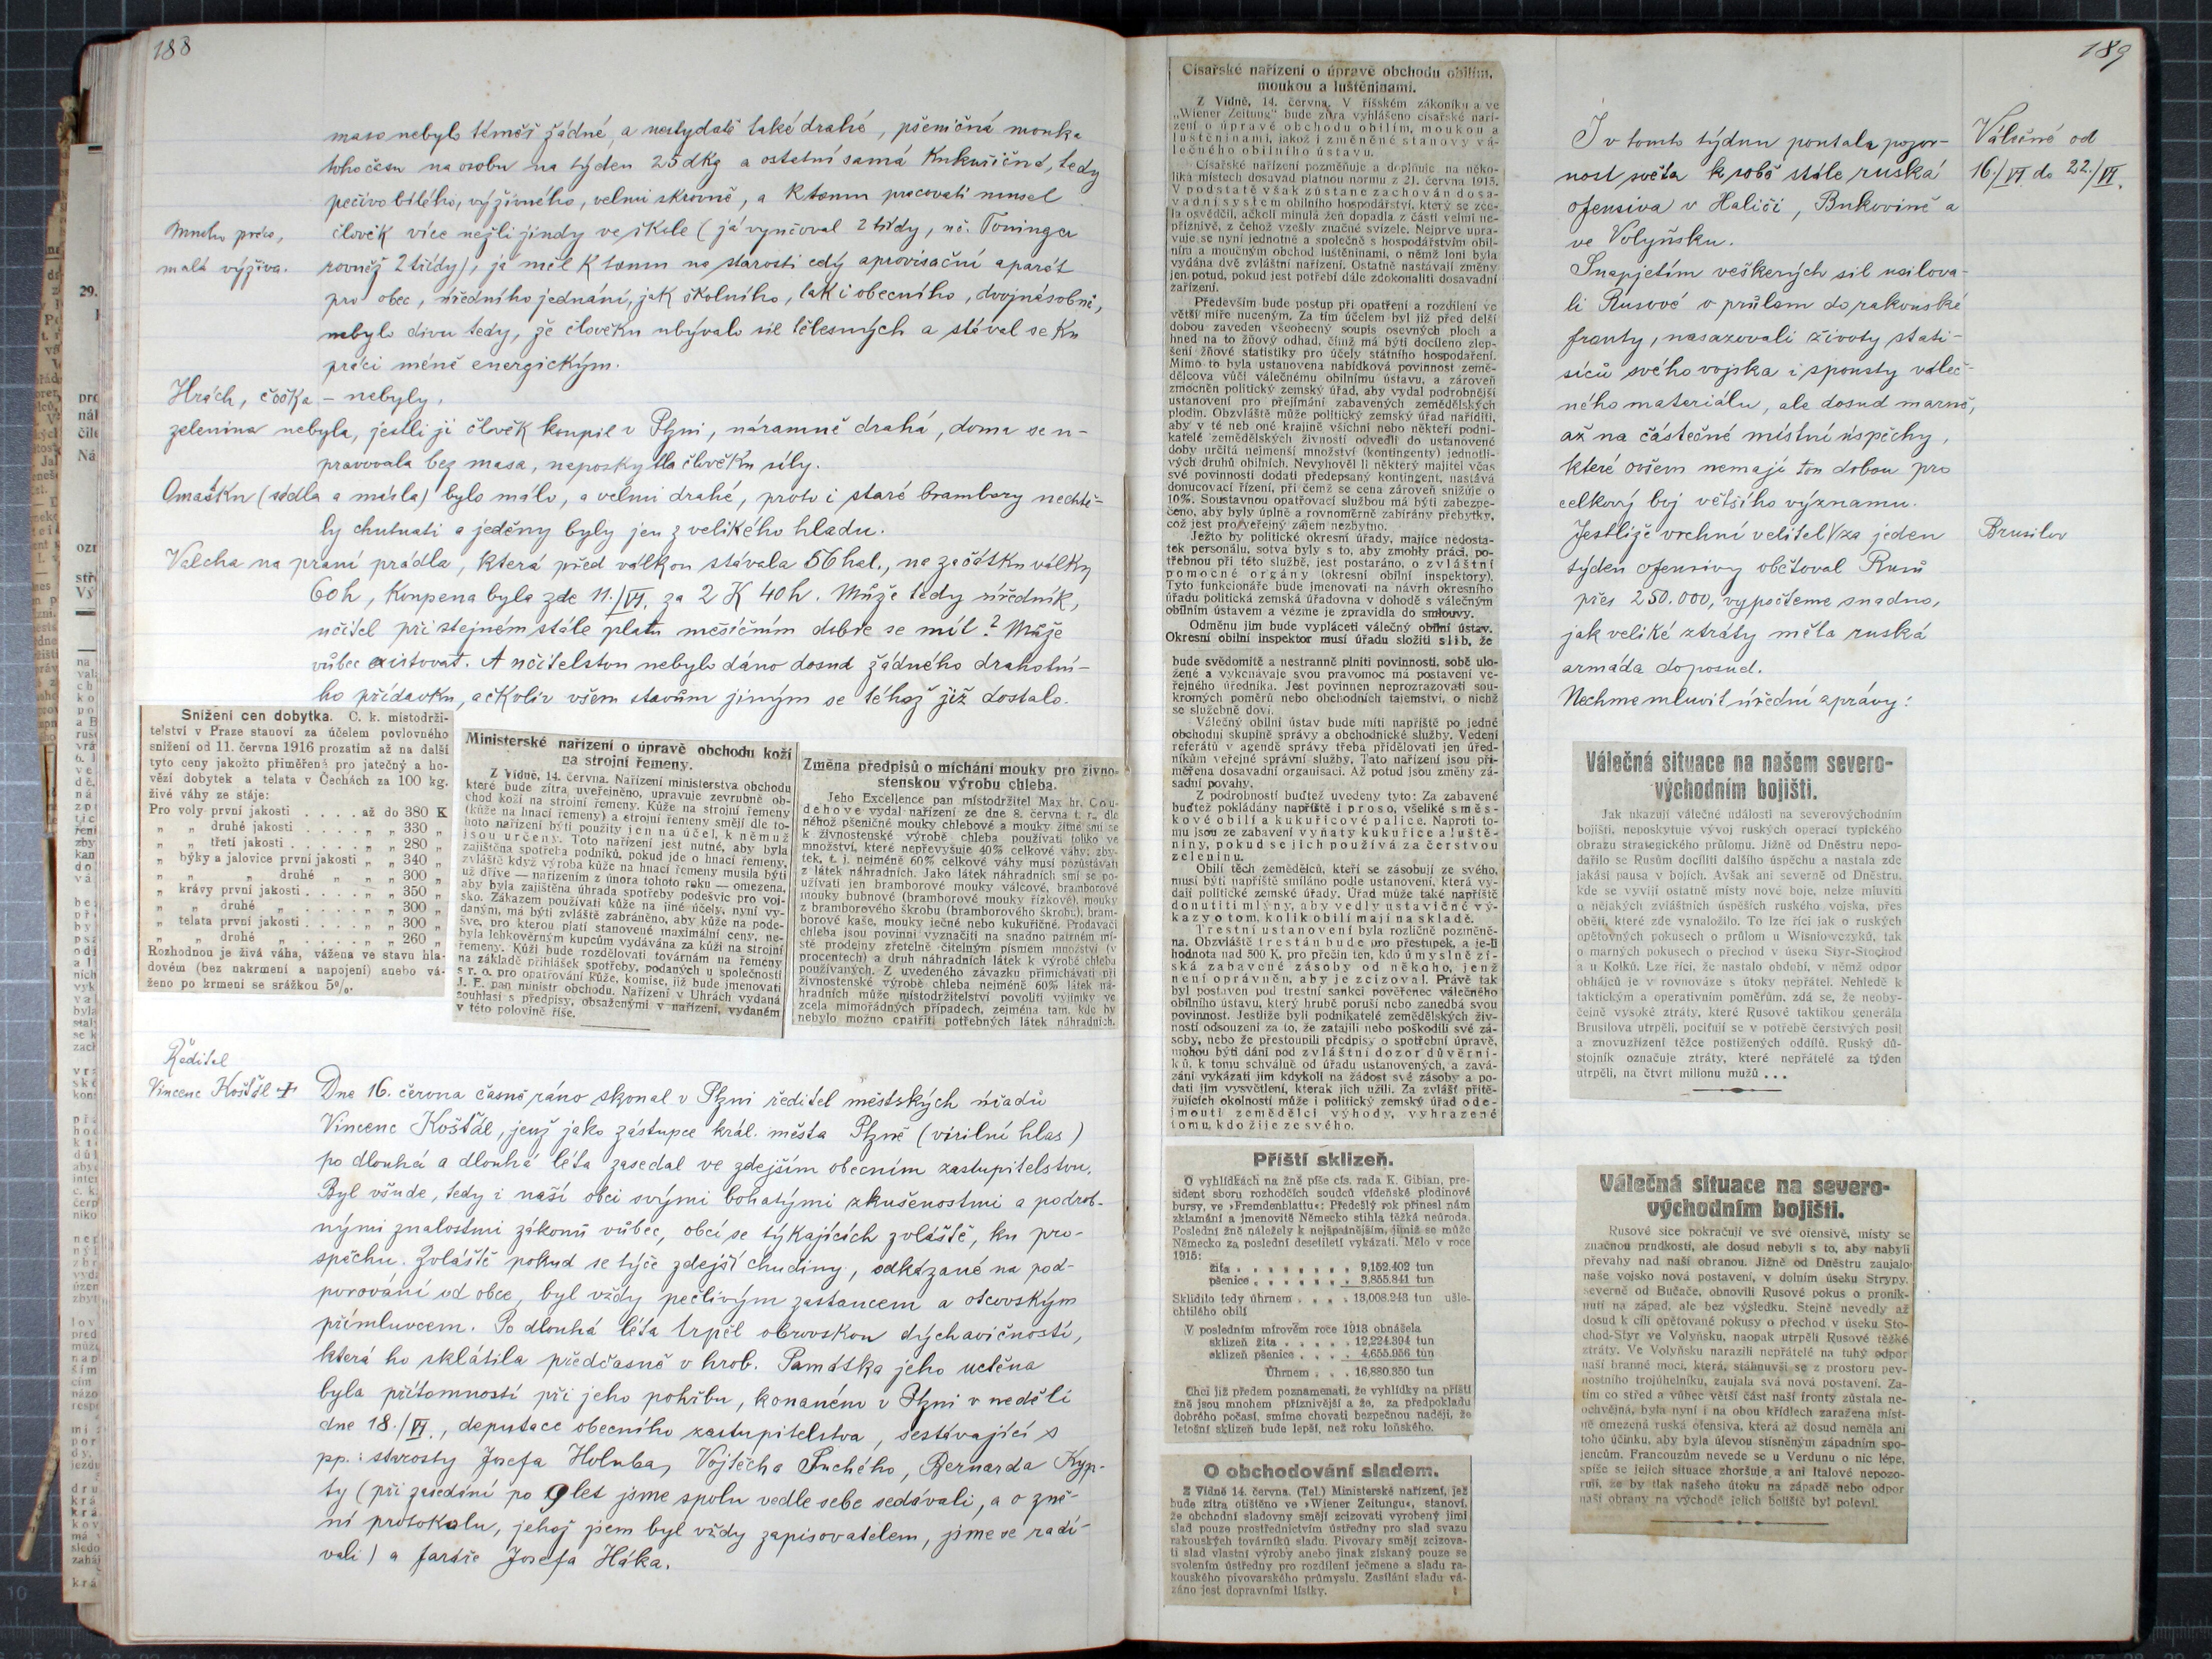 188
maso nebylo téměř žádné, a nestydatě také drahé, pšeničná mouka
toho času na osobu na týden 25 dkg a ostatní samá kukuřičná, tedy
pečivo bílého, výživného, velmi skrovně, a k tomu pracovati musel
Mnoho práce,
malá výživa.
člověk více nežli jindy ve škole (já vyučoval 2 třídy, uč. Toninger
rovněž 2 třídy), já měl k tomu na starosti celý aprovisační aparát
pro obec, úředního jednání, jak školního, tak i obecního, dvojnásobně,
nebylo divu tedy, že člověku ubývalo sil tělesných a stával se ku
práci méně energickým.
Hrách, čočka – nebyly,
zelenina nebyla, jestli ji člověk koupil v Plzni, náramně drahá, doma se u-
pravovala bez masa, neposkytla člověku síly.
Omastku (sádla a másla) bylo málo, a velmi drahé, proto i staré brambory nechtě-
ly chutnati a jeděny byly jen z velikého hladu.
Valcha na praní prádla, která před válkou stávala 56 hal., na začátku války
60 h, koupena byla zde 11./VI. za 2 K 40 h. Může tedy úředník,
učitel při stejném stále platu měsíčním dobře se mít? Může
vůbec existovat. A učitelstvu nebylo dáno dosud žádného drahotní-
ho přídavku, ačkoliv všem stavům jiným se téhož již dostalo.
Snížení cen dobytka. C. k. místodrži-
telství v Praze stanoví za účelem povlovného
snížení od 11. června 1916 prozatím až na další
tyto ceny jakožto přiměřené pro jatečný a ho-
vězí dobytek a telata v Čechách za 100 kg.
živé váhy ze stáje:
Pro voly první jakosti . . . . až do 380 K
„ „ druhé jakosti . . . . . „ „ 330 „
„ „ třetí jakosti . . . . . „ „ 280 „
„ býky a jalovice první jakosti „ „ 340 „
„ „ „ druhé „ „ „ 300 „
„ krávy první jakosti . . . . „ „ 350 „
„ „ druhé „ . . . . . „ „ 300 „
„ telata první jakosti . . . . „ „ 300 „
„ „ druhé „ . . . . . „ „ 260 „
Rozhodnou je živá váha, vážena ve stavu hla-
dovém (bez nakrmení a napojení) anebo vá-
ženo po krmení se srážkou 5%.
Ministerské nařízení o úpravě obchodu koží
na strojní řemeny.
Z Vídně, 14. června. Nařízení ministerstva obchodu
které bude zítra uveřejněno, upravuje zevrubně ob-
chod koží na strojní řemeny. Kůže na strojní řemeny
(kůže na hnací řemeny) a strojní řemeny smějí dle to-
hoto nařízení býti použity jen na účel, k němuž
jsou určeny. Toto nařízení jest nutné, aby byla
zajištěna spotřeba podniků, pokud jde o hnací řemeny,
zvláště když výroba kůže na hnací řemeny musila býti
už dříve — nařízením z února tohoto roku — omezena,
aby byla zajištěna úhrada spotřeby podešvic pro voj-
sko. Zákazem používati kůže na jiné účely, nyní vy-
daným, má býti zvláště zabráněno, aby kůže na pode-
šve, pro kterou platí stanovené maximální ceny, ne-
byla lehkověrným kupcům vydávána za kůži na strojní
řemeny. Kůži bude rozdělovati továrnám na řemeny
na základě přihlášek spotřeby, podaných u společnosti
s r. o. pro opatřování kůže, komise, již bude jmenovati
J. E. pan ministr obchodu. Nařízení v Uhrách vydaná
souhlasí s předpisy, obsaženými v nařízení, vydaném
v této polovině říše.
Změna předpisů o míchání mouky pro živno-
stenskou výrobu chleba.
Jeho Excellence pan místodržitel Max hr. Cou-
dehove vydal nařízení ze dne 8. června t. r., dle
něhož pšeničné mouky chlebové a mouky žitné smí se
k živnostenské výrobě chleba používati toliko ve
množství, které nepřevyšuje 40% celkové váhy; zby-
tek, t. j. nejméně 60% celkové váhy musí pozůstávati
z látek náhradních. Jako látek náhradních smí se po-
užívati jen bramborové mouky válcové, bramborové
mouky bubnové (bramborové mouky řízkové), mouky
z bramborového škrobu (bramborového škrobu), bram-
borové kaše, mouky ječné nebo kukuřičné. Prodavači
chleba jsou povinni vyznačiti na snadno patrném mí-
stě prodejny zřetelně čitelným písmem množství (v
procentech) a druh náhradních látek k výrobě chleba
používaných. Z uvedeného závazku přimíchávati při
živnostenské výrobě chleba nejméně 60% látek ná-
hradních může místodržitelství povoliti vyjímky ve
zcela mimořádných případech, zejména tam, kde by
nebylo možno opatřiti potřebných látek náhradních.
Ředitel
Vincenc Košťál +
Dne 16. června časně ráno skonal v Plzni ředitel městských úřadů
Vincenc Košťál, jenž jako zástupce král. města Plzně (virilní hlas)
po dlouhá a dlouhá léta zasedal ve zdejším obecním zastupitelstvu.
Byl všude, tedy i naší obci svými bohatými zkušenostmi a podrob-
nými znalostmi zákonů vůbec, obcí se týkajících zvláště, ku pro-
spěchu. Zvláště pokud se týče zdejší chudiny, odkázané na pod-
porování od obce, byl vždy pečlivým zastancem a otcovským
přímluvcem. Po dlouhá léta trpěl obrovskou dýchavičností,
která ho sklátila předčasně v hrob. Památka jeho uctěna
byla přítomností při jeho pohřbu, konaném v Plzni v neděli
dne 18./VI., deputace obecního zastupitelstva, sestávající z
pp.: starosty Josefa Holuba, Vojtěcha Suchého, Bernarda Kyp-
ty (při zasedání po 9 let jsme spolu vedle sebe sedávali, a o zně-
ní protokolu, jehož jsem byl vždy zapisovatelem, jsme se radí-
vali) a faráře Josefa Háka.
189
Císařské nařízení o úpravě obchodu obilím,
moukou a luštěninami.
Z Vídně, 14. června. V říšském zákoníku a ve
„Wiener Zeitung“ bude zítra vyhlášeno císařské naří-
zení o úpravě obchodu obilím, moukou a
luštěninami, jakož i změněné stanovy vá-
lečného obilního ústavu.
Císařské nařízení pozměňuje a doplňuje na něko-
lika místech dosavad platnou normu z 21. června 1915.
V podstatě však zůstane zachován dosa-
vadní systém obilního hospodářství, který se zce-
la osvědčil, ačkoli minulá žeň dopadla z části velmi ne-
příznivě, z čehož vzešly značné svízele. Nejprve upra-
vuje se nyní jednotně a společně s hospodářstvím obil-
ním a moučným obchod luštěninami, o němž loni byla
vydána dvě zvláštní nařízení. Ostatně nastávají změny
jen potud, pokud jest potřebí dále zdokonaliti dosavadní
zařízení.
Především bude postup při opatření a rozdílení ve
větší míře nuceným. Za tím účelem byl již před delší
dobou zaveden všeobecný soupis osevných ploch a
hned na to žňový odhad, čímž má býti docíleno zlep-
šení žňové statistiky pro účely státního hospodaření.
Mimo to byla ustanovena nabídková povinnost země-
dělcova vůči válečnému obilnímu ústavu, a zároveň
zmocněn politický zemský úřad, aby vydal podrobnější
ustanovení pro přejímání zabavených zemědělských
plodin. Obzvláště může politický zemský úřad naříditi,
aby v té neb oné krajině všichni nebo někteří podni-
katelé zemědělských živností odvedli do ustanovené
doby určitá nejmenší množství (kontingenty) jednotli-
vých druhů obilních. Nevyhověl li některý majitel včas
své povinnosti dodati předepsaný kontingent, nastává
donucovací řízení, při čemž se cena zároveň snižuje o
10%. Soustavnou opatřovací službou má býti zabezpe-
čeno, aby byly úplně a rovnoměrně zabírány přebytky,
což jest pro veřejný zájem nezbytno.
Ježto by politické okresní úřady, majíce nedosta-
tek personálu, sotva byly s to, aby zmohly práci, po-
třebnou při této službě, jest postaráno, o zvláštní
pomocné orgány (okresní obilní inspektory).
Tyto funkcionáře bude jmenovati na návrh okresního
úřadu politická zemská úřadovna v dohodě s válečným
obilním ústavem a vezme je zpravidla do smlouvy.
Odměnu jim bude vypláceti válečný obilní ústav.
Okresní obilní inspektor musí úřadu složiti slib, že
bude svědomitě a nestranně plniti povinnosti, sobě ulo-
žené a vykonávaje svou pravomoc má postavení ve-
řejného úředníka. Jest povinnen neprozrazovati sou-
kromých poměrů nebo obchodních tajemství, o nichž
se služebně doví.
Válečný obilní ústav bude míti napříště po jedné
obchodní skupině správy a obchodnické služby. Vedení
referátů v agendě správy třeba přidělovati jen úřed-
níkům veřejné správní služby. Tato nařízení jsou při-
měřena dosavadní organisaci. Až potud jsou změny zá-
sadní povahy.
Z podrobností buďtež uvedeny tyto: Za zabavené
buďtež pokládány napříště i proso, všeliké směs-
kové obilí a kukuřicové palice. Naproti to-
mu jsou ze zabavení vyňaty kukuřice a luště-
niny, pokud se jich používá za čerstvou
zeleninu.
Obilí těch zemědělců, kteří se zásobují ze svého,
musí býti napříště smíláno podle ustanovení, která vy-
dají politické zemské úřady. Úřad může také napříště
donutiti mlýny, aby vedly ustavičné vý-
kazy o tom, kolik obilí mají na skladě.
Trestní ustanovení byla rozličně pozměně-
na. Obzvláště trestán bude pro přestupek, a je-li
hodnota nad 500 K, pro přečin ten, kdo úmyslně zí-
ská zabavené zásoby od někoho, jenž
není oprávněn, aby je zcizoval. Právě tak
byl postaven pod trestní sankci pověřenec válečného
obilního ústavu, který hrubě poruší nebo zanedbá svou
povinnost. Jestliže byli podnikatelé zemědělských živ-
ností odsouzeni za to, že zatajili nebo poškodili své zá-
soby, nebo že přestoupili předpisy o spotřební úpravě,
mohou býti dáni pod zvláštní dozor důvěrní-
ků, k tomu schválně od úřadu ustanovených, a zavá-
záni vykázati jim kdykoli na žádost své zásoby a po-
dati jim vysvětlení, kterak jich užili. Za zvlášť přitě-
žujících okolností může i politický zemský úřad ode-
jmouti zemědělci výhody, vyhrazené
tomu, kdo žije ze svého.
Příští sklizeň.
O vyhlídkách na žně píše cís. rada K. Gibian, pre-
sident sboru rozhodčích soudců vídeňské plodinové
bursy, ve »Fremdenblattu«: Předešlý rok přinesl nám
zklamání a jmenovitě Německo stihla těžká neúroda.
Poslední žně náležely k nejšpatnějším, jimiž se může
Německo za poslední desetiletí vykázati. Mělo v roce
1915:
žita . . . . . . . . 9,152.402 tun
pšenice . . . . . . . 3,855.841 tun
Sklidilo tedy úhrnem . . . . 13,008.243 tun ušle-
chtilého obilí
V posledním mírovém roce 1913 obnášela
sklizeň žita . . . . . 12,224.394 tun
sklizeň pšenice . . . . 4,655.956 tun
Úhrnem . . . 16,880.350 tun
Chci již předem poznamenati, že vyhlídky na příští
žně jsou mnohem příznivější a že, za předpokladu
dobrého počasí, smíme chovati bezpečnou naději, že
letošní sklizeň bude lepší, než roku loňského.
O obchodování sladem.
Z Vídně 14. června. (Tel.) Ministerské nařízení, jež
bude zítra otištěno ve »Wiener Zeitungu«, stanoví,
že obchodní sladovny smějí zcizovati vyrobený jimi
slad pouze prostřednictvím ústředny pro slad svazu
rakouských továrníků sladu. Pivovary smějí zcizova-
ti slad vlastní výroby anebo jinak získaný pouze se
svolením ústředny pro rozdílení ječmene a sladu ra-
kouského pivovarského průmyslu. Zasílání sladu vá-
záno jest dopravními lístky.
Válečné od
16./VI do 22./VI.
I v tomto týdnu poutala pozor-
nost světa k sobě stále ruská
ofensiva v Haliči, Bukovině a
ve Volyňsku.
S napjetím veškerých sil usilova-
li Rusové o průlom do rakouské
fronty, nasazovali životy stati-
síců svého vojska i spousty váleč-
ného materiálu, ale dosud marně,
až na částečné místní úspěchy,
které ovšem nemají tou dobou pro
celkový boj většího významu.
Jestliže vrchní velitel V za jeden
Brusilov
týden ofensivy obětoval Rusů
přes 250.000, vypočteme snadno,
jak veliké ztráty měla ruská
armáda doposud.
Nechme mluvit úřední zprávy:
Válečná situace na našem severo-
východním bojišti.
Jak ukazují válečné události na severovýchodním
bojišti, neposkytuje vývoj ruských operací typického
obrazu strategického průlomu. Jižně od Dněstru nepo-
dařilo se Rusům docíliti dalšího úspěchu a nastala zde
jakási pausa v bojích. Avšak ani severně od Dněstru,
kde se vyvíjí ostatně místy nové boje, nelze mluviti
o nějakých zvláštních úspěších ruského vojska, přes
oběti, které zde vynaložilo. To lze říci jak o ruských
opětovných pokusech o průlom u Wisniowczyků, tak
o marných pokusech o přechod v úseku Styr-Stochod
a u Kolků. Lze říci, že nastalo období, v němž odpor
obhájců je v rovnováze s útoky nepřátel. Nehledě k
taktickým a operativním poměrům, zdá se, že neoby-
čejně vysoké ztráty, které Rusové taktikou generála
Brusilova utrpěli, pociťují se v potřebě čerstvých posil
a znovuzřízení těžce postižených oddílů. Ruský dů-
stojník označuje ztráty, které nepřátelé za týden
utrpěli, na čtvrt milionu mužů ...
Válečná situace na severo-
východním bojišti.
Rusové sice pokračují ve své ofensivě, místy se
značnou prudkostí, ale dosud nebyli s to, aby nabyli
převahy nad naší obranou. Jižně od Dněstru zaujalo
naše vojsko nová postavení, v dolním úseku Strypy,
severně od Bučače, obnovili Rusové pokus o pronik-
nutí na západ, ale bez výsledku. Stejně nevedly až
dosud k cíli opětované pokusy o přechod v úseku Sto-
chod-Styr ve Volyňsku, naopak utrpěli Rusové těžké
ztráty. Ve Volyňsku narazili nepřátelé na tuhý odpor
naší branné moci, která, stáhnuvši se z prostoru pev-
nostního trojúhelníku, zaujala svá nová postavení. Za-
tím co střed a vůbec větší část naší fronty zůstala ne-
ochvějná, byla nyní i na obou křídlech zaražena míst-
ně omezená ruská ofensiva, která až dosud neměla ani
toho účinku, aby byla úlevou stísněným západním spo-
jencům. Francouzům nevede se u Verdunu o nic lépe,
spíše se jejich situace zhoršuje a ani Italové nepozo-
rují, že by tlak našeho útoku na západě nebo odpor
naší obrany na východě jejich bojiště byl polevil.